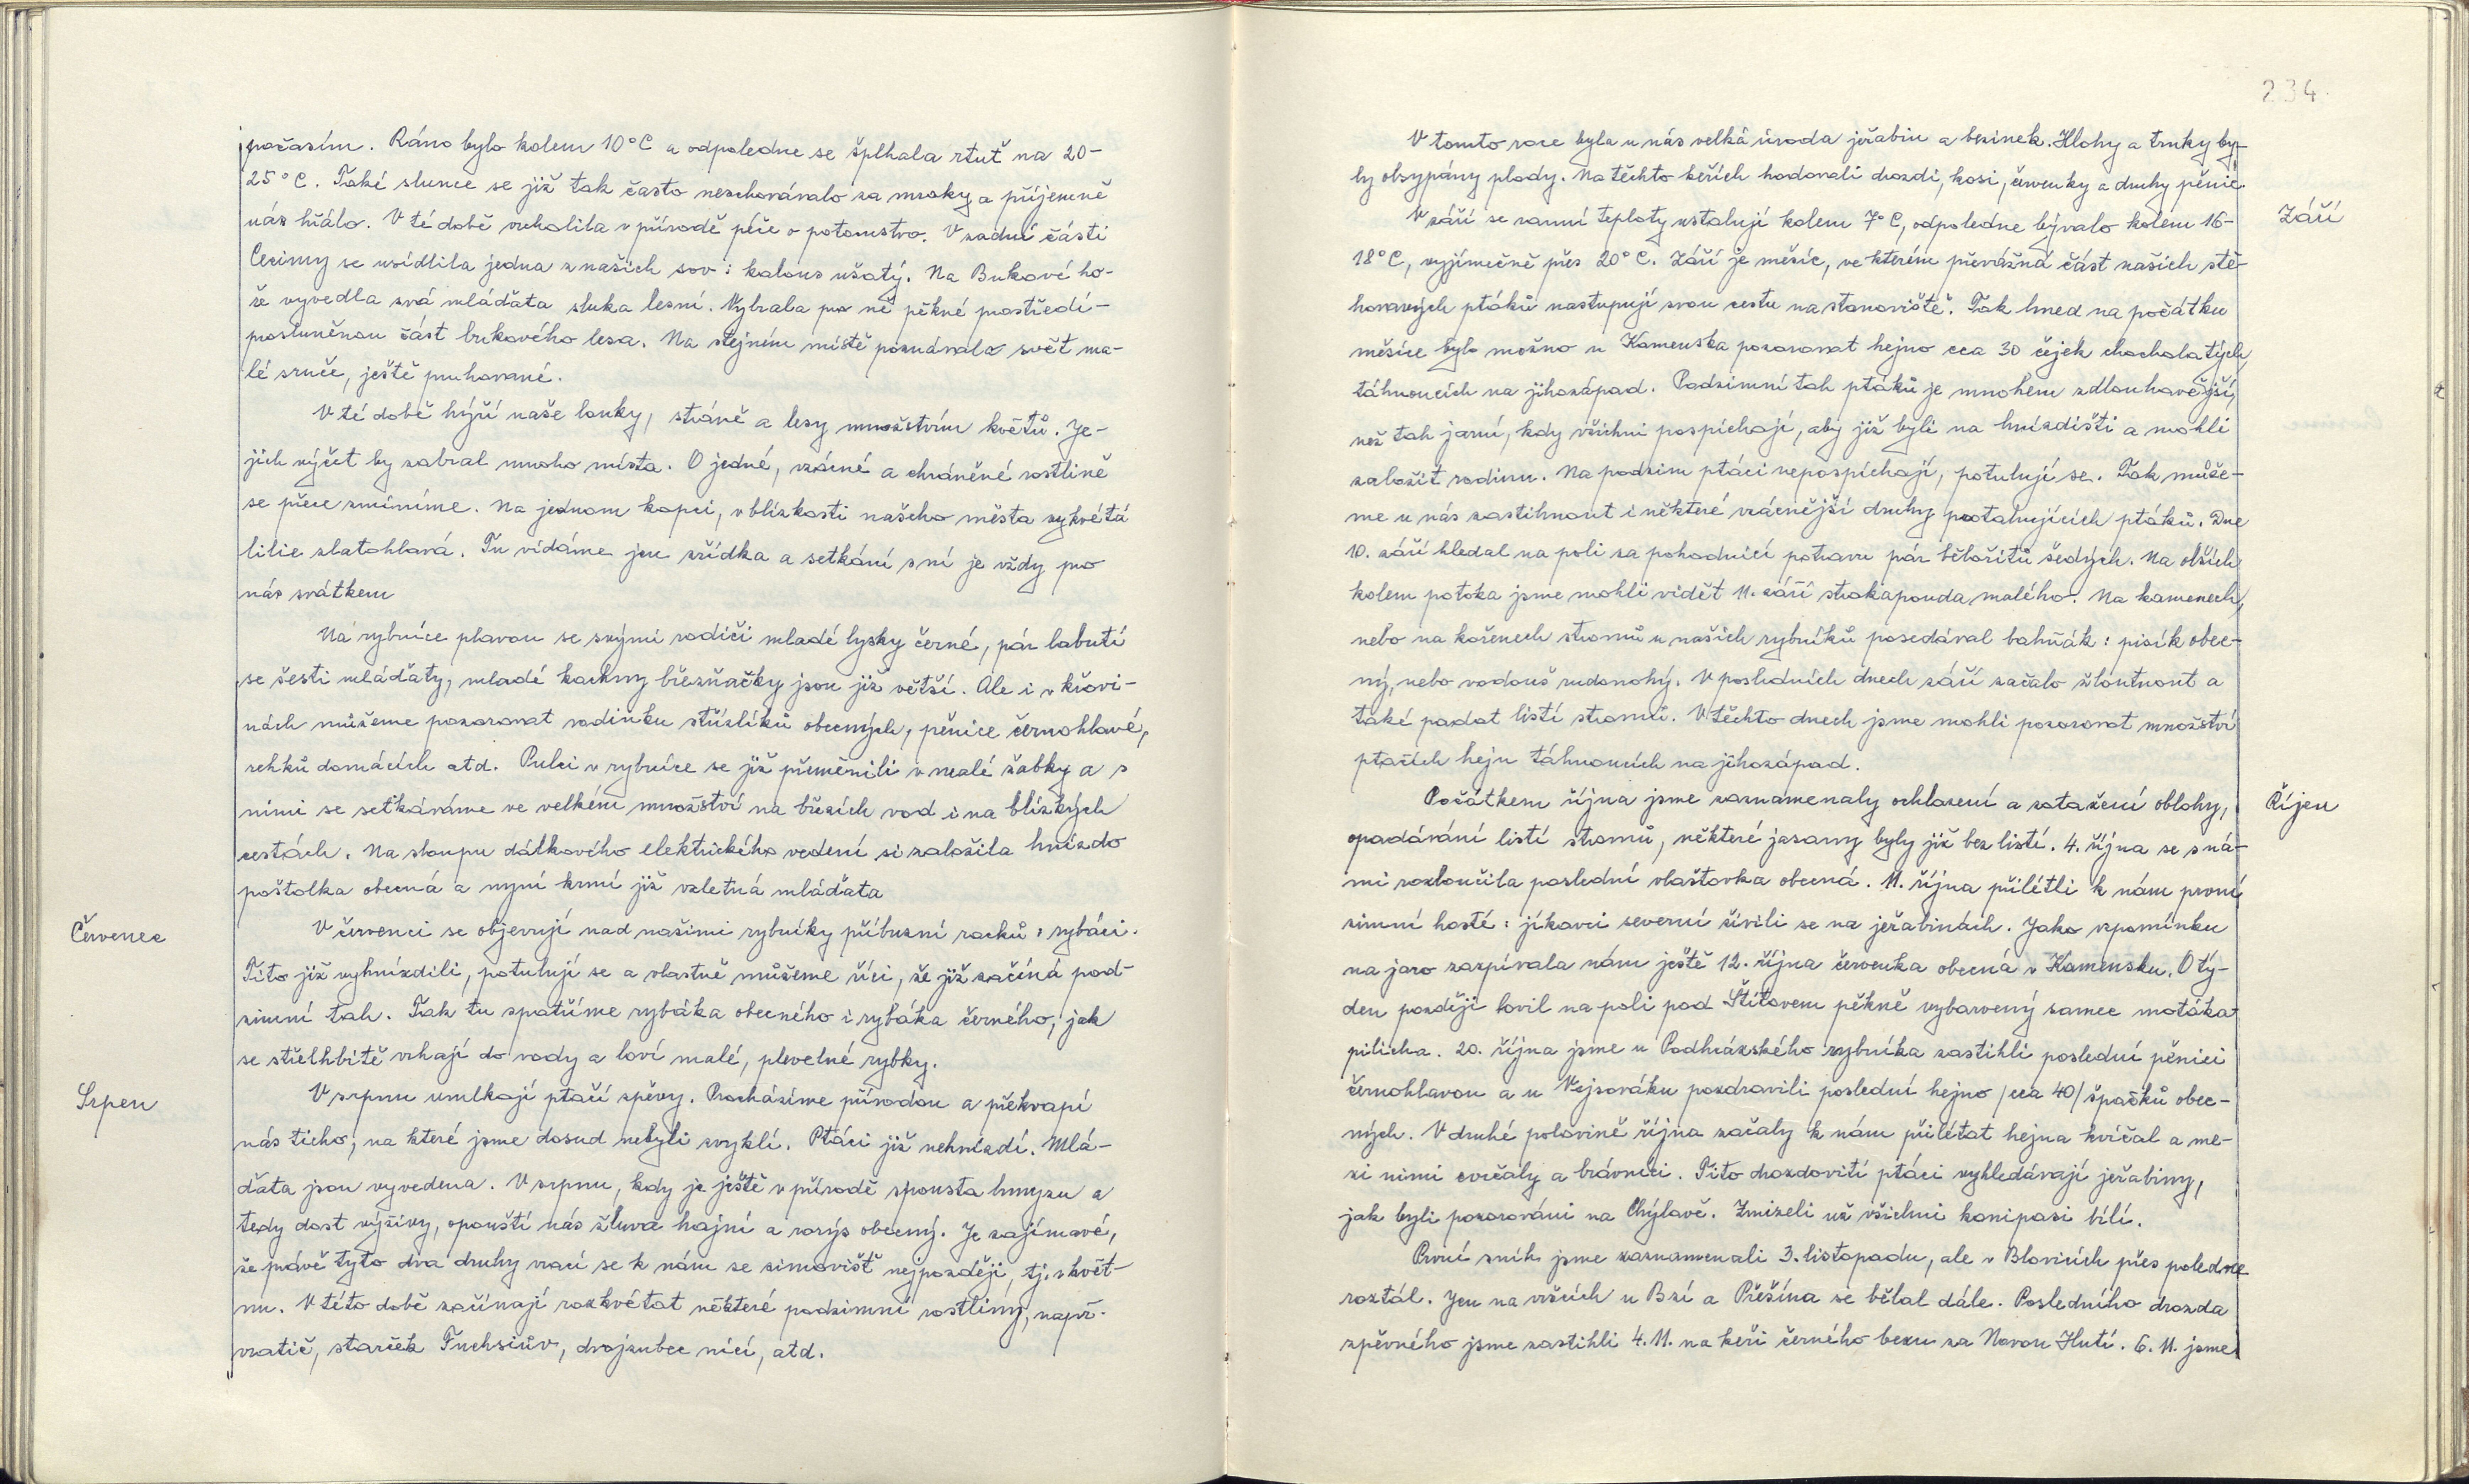 počasím. Ráno bylo kolem 10°C a odpoledne se šplhala rtuť na 20-
25°C. Také slunce se již tak často neschovávalo za mraky a příjemně
nás hřálo. V té době vrcholila v přírodě péče o potomstvo. V zadní části
Cecimy se usídlila jedna z našich sov: kalous ušatý. Na Bukové ho-
ře vyvedla svá mláďata sluka lesní. Vybrala pro ně pěkné prostředí-
prosluněnou část bukového lesa. Na stejném místě poznávala svět ma-
lé srnče, ještě pruhované.
V té době hýří naše louky, stráně a lesy množstvím květů. Je-
jich výčet by zabral mnoho místa. O jedné, vzácné a chráněné rostlině
se přece zmíníme. Na jednom kopci, v blízkosti našeho města vykvétá
lilie zlatohlavá. Tu vídáme jen zřídka a setkání s ní je vždy pro
nás svátkem
Na rybníce plavou se svými rodiči mladé lysky černé, pár labutí
se šesti mláďaty, mladé kachny březňačky jsou již větší. Ale i v křovi-
nách můžeme pozorovat rodinku střízlíků obecných, pěnice černohlavé,
rehků domácích atd. Pulci v rybníce se již přeměnili v malé žabky a s
nimi se setkáváme ve velkém množství na březích vod i na blízkých
cestách. Na sloupu dálkového elektrického vedení si založila hnízdo
poštolka obecná a nyní krmí již vzletná mláďata
Červenec
V červenci se objevují nad našimi rybníky příbuzní racků: rybáci.
Tito již vyhnízdili, potulují se a vlastně můžeme říci, že již začíná pod-
zimní tah. Tak tu spatříme rybáka obecného i rybáka černého, jak
se střelhbitě vrhají do vody a loví malé, plevelné rybky.
Srpen
V srpnu umlkají ptačí zpěvy. Procházíme přírodou a překvapí
nás ticho, na které jsme dosud nebyli zvyklí. Ptáci již nehnízdí. Mlá-
ďata jsou vyvedena. V srpnu, kdy je ještě v přírodě spousta hmyzu a
tedy dost výživy, opouští nás žluva hajní a rorýs obecný. Je zajímavé,
že právě tyto dva druhy vrací se k nám ze zimovišť nejpozději, tj. v květ-
nu. V této době začínají rozkvétat některé podzimní rostliny, např.
vratič, starček Fuchsiův, dvojzubec nící, atd.
234.
V tomto roce byla u nás velká úroda jeřabin a bezinek. Hlohy a trnky by-
ly obsypány plody. Na těchto keřích hodovali drozdi, kosi, červenky a druhy pěnic.
Září
V září se ranní teploty ustalují kolem 7°C, odpoledne bývalo kolem 16-
18°C, vyjímečně přes 20°C. Září je měsíc, ve kterém převážná část našich stě-
hovavých ptáků nastupují svou cestu na stanoviště. Tak hned na počátku
měsíce bylo možno u Kamenska pozorovat hejno cca 30 čejek chocholatých,
táhnoucích na jihozápad. Podzimní tah ptáků je mnohem zdlouhavější,
než tah jarní, kdy všichni pospíchají, aby již byli na hnízdišti a mohli
založit rodinu. Na podzim ptáci nepospíchají, potulují se. Tak může-
me u nás zastihnout i některé vzácnější druhy protahujících ptáků. Dne
10. září hledal na poli za pohodnicí potravu pár bělořitů šedých. Na olších
kolem potoka jsme mohli vidět 11. září strakapouda malého. Na kamenech,
nebo na kořenech stromů u našich rybníků posedával bahňák: pisík obec-
ný, nebo vodouš rudonohý. V posledních dnech září začalo žloutnout a
také padat listí stromů. V těchto dnech jsme mohli pozorovat množství
ptačích hejn táhnoucích na jihozápad.
Říjen
Počátkem října jsme zaznamenaly ochlazení a zatažení oblohy,
opadávání listí stromů, některé jasany byly již bez listí. 4. října se s ná-
mi rozloučila poslední vlaštovka obecná. 11. října přilétli k nám první
zimní hosté: jíkavci severní živili se na jeřabinách. Jako vzpomínku
na jaro zazpívala nám ještě 12. října červenka obecná v Kamensku. O tý-
den později lovil na poli pod Štítovem pěkně vybarvený samec motáka
pilicha. 20. října jsme u Podhrázského rybníka zastihli poslední pěnici
černohlavou a u Vejsováku pozdravili poslední hejno /cca 40/ špačků obec-
ných. V druhé polovině října začaly k nám přilétat hejna kvíčal a me-
zi nimi cvrčaly a brávníci. Tito drozdovití ptáci vyhledávají jeřabiny,
jak byli pozorováni na Chýlavě. Zmizeli už všichni konipasi bílí.
První sníh jsme zaznamenali 3. listopadu, ale v Blovicích přes poledne
roztál. Jen na vršcích u Bzí a Přešína se bělal dále. Posledního drozda
zpěvného jsme zastihli 4. 11. na keři černého bezu za Novou Hutí. 6. 11. jsme